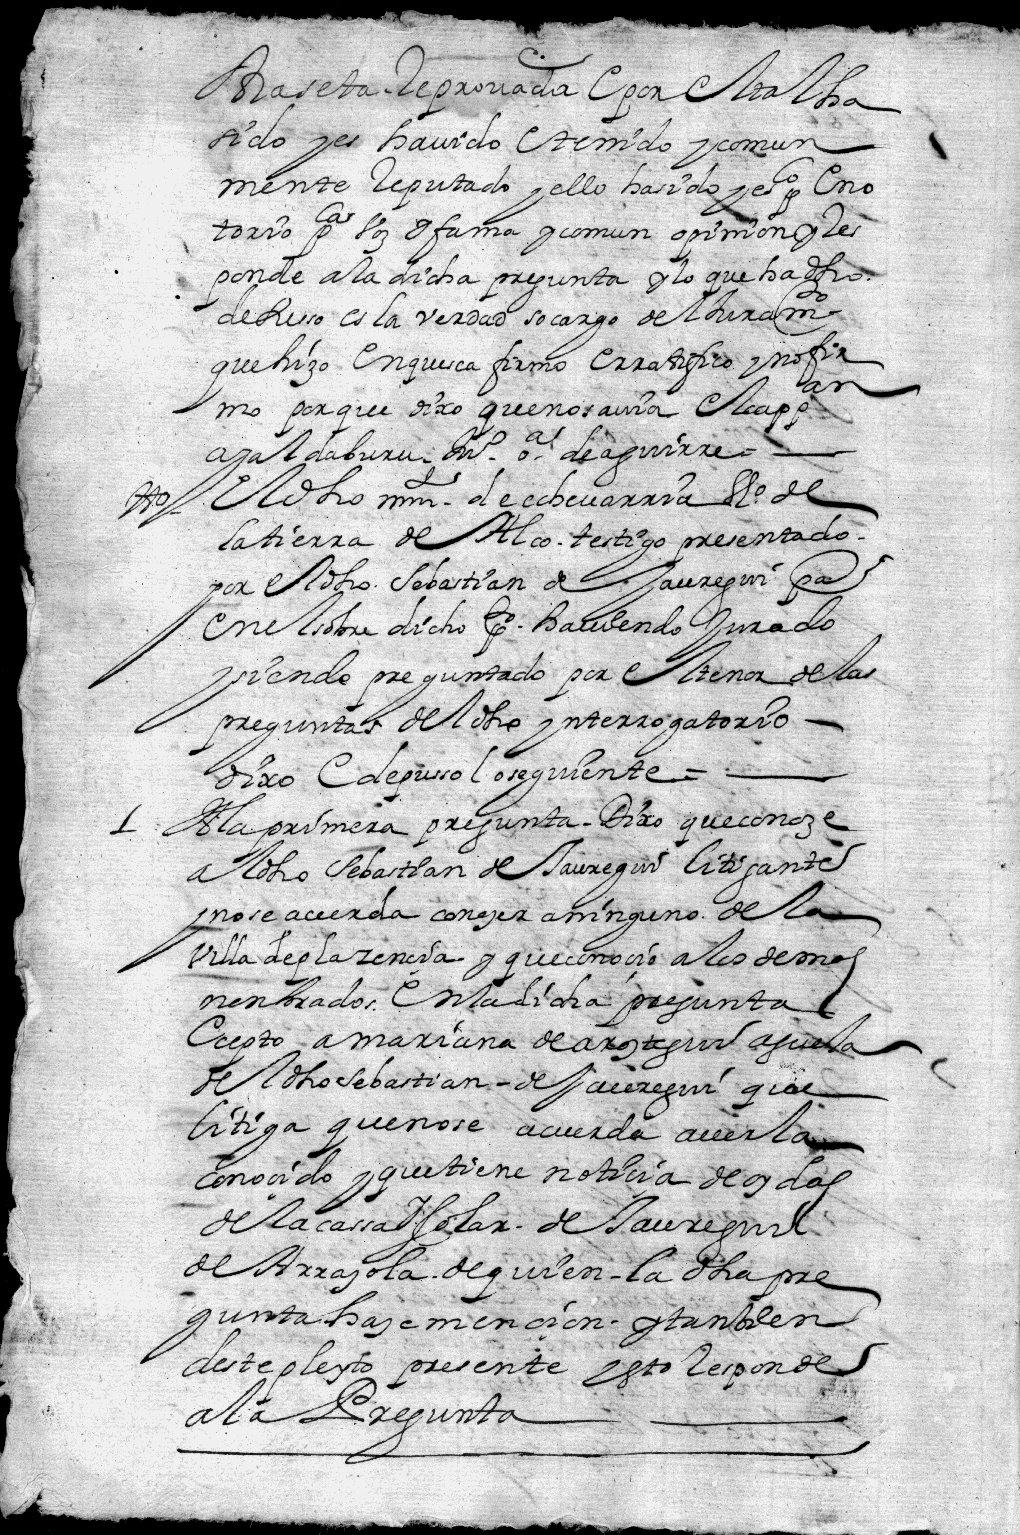 raseta Reprovada E por El tal ha
sido y es havido E tenido y comun
mente Reputado y ello ha sido y es p co E no
torio p ca boz E fama y comun opinion y Res
ponde a la dicha pregunta y lo que ha dho
de Russo es la verdad so cargo del Juram to
que hizo En que sea firmo E rratifico y no fir
mo porque dixo que no savia
asaldaburu de aguirre =
tto El dho mrn de echevarria Vº de
la tierra de testigo presentado
por El dho Sebastian de Jauregui pa
En el sobre dicho havienido Jurado
y siendo preguntado por El tenor de las
preguntas del dho ynterrogatorio
dixo E depusso lo seguiente =
1 A la primera pregunta Dixo que conoze
al dho Sebastian de Jauregui litigante
y no se acuerda conozer a ninguno de la
villa de plazencia y que conocio a los demas
nenbrados En la dicha pregunta
Ecepto a mariana de arostegui aguela
del dho Sebastian de Jauregui que
litiga que no se acuerda averla
conocido y que tiene noticia de oydas
de la cassa y solar de Jauregui
de Arrazola de quien la dha pre
gunta haze mencion y tanbien
deste pleyto presente y esto Responde
a la Pregunta